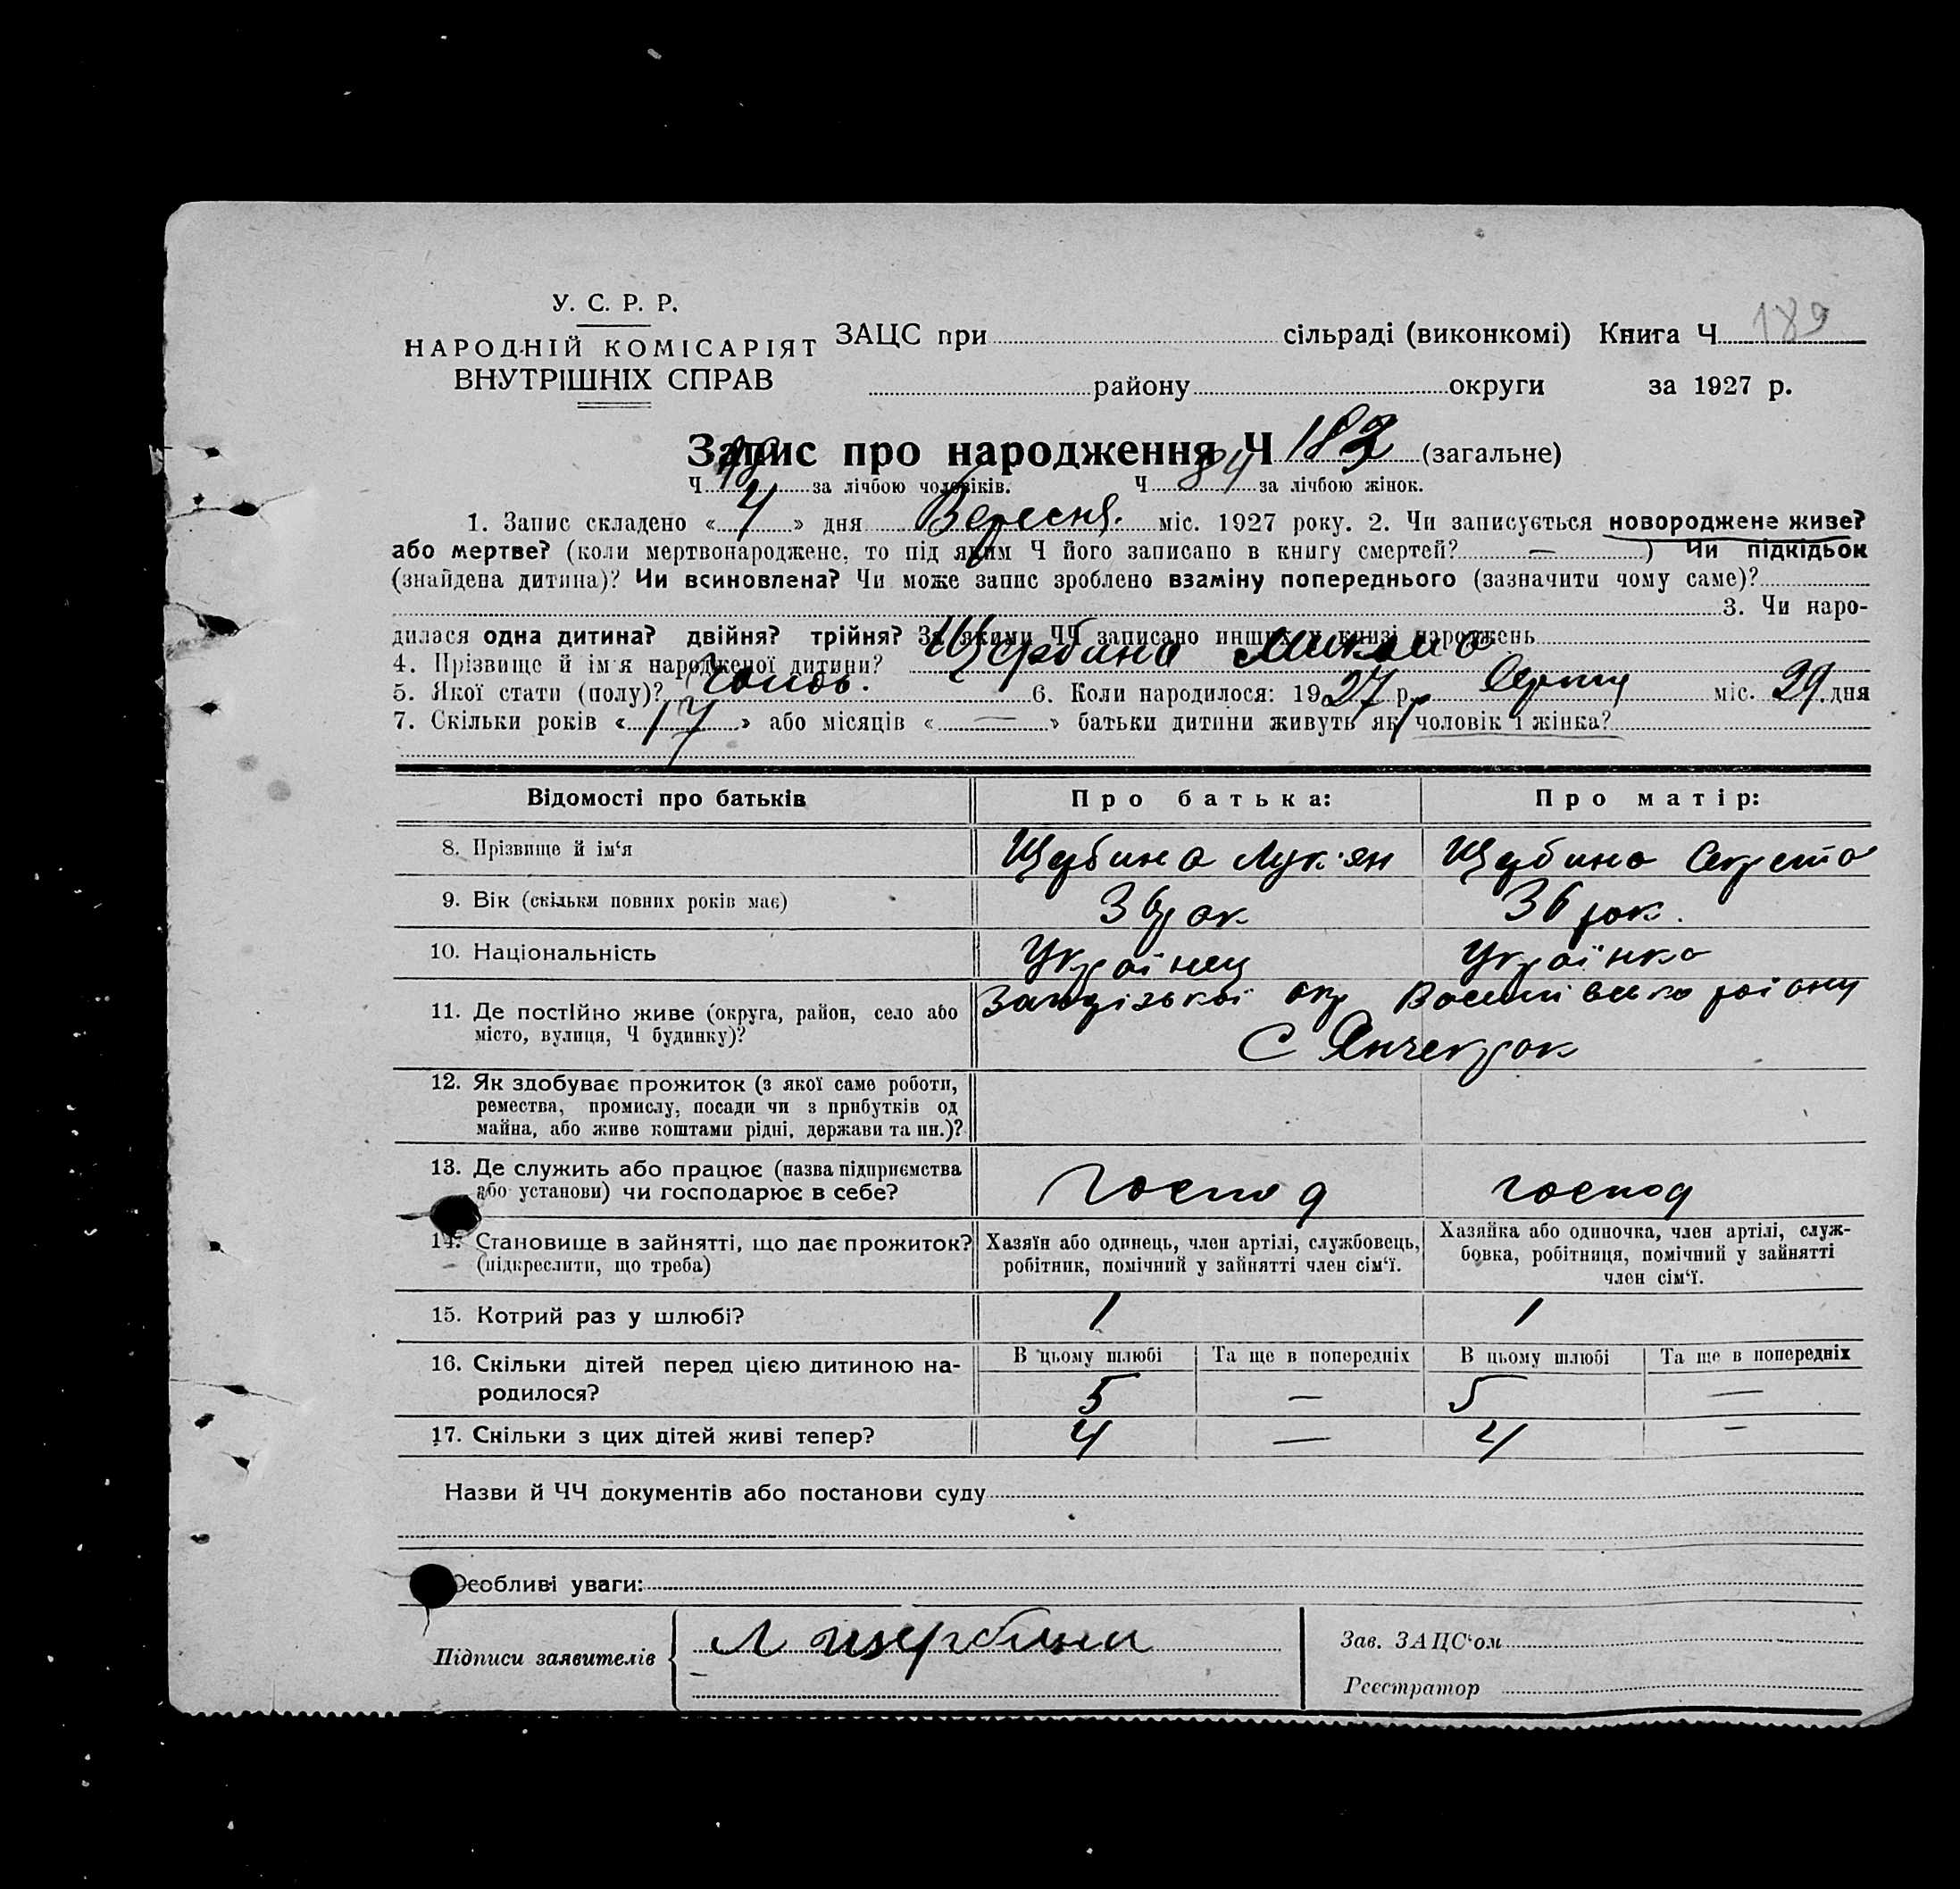 189
У. С. Р. Р.
НАРОДНІЙ КОМІСАРІЯТ
ВНУТРІШНІХ СПРАВ
ЗАЦС при сільраді (виконкомі) Книга Ч
району округи за 1927 р.
Запис про народження Ч (загальне)
Ч за лічбою чоловіків. Ч 84 за лічбою жінок.
1. Запис складено « 4 » дня Вересня міс. 1927 року. 2. Чи записується новороджене живе?
або мертве? (коли мертвонароджене, то під яким Ч його записано в книгу смертей? — ) Чи підкідьок
(знайдена дитина)? Чи всиновлена? Чи може запис зроблено взаміну попереднього (зазначити чому саме)?
3. Чи наро-
дилася одна дитина? двійня? трійня? За якими ЧЧ записано инших у книзі народжень
4. Прізвище й ім'я народженої дитини? Щербина Микола
5. Якої стати (полу)? 6. Коли народилося: 1927 р. Серпня міс. 29 дня
7. Скільки років « 17 » або місяців « — » батьки дитини живуть як чоловік і жінка?
Відомості про батьків Про батька: Про матір:
8. Прізвище й ім'я Щербина Лук'ян Щербина
9. Вік (скільки повних років має) 36 рок 36 рок.
10. Національність Українец Українка
11. Де постійно живе (округа, район, село або
місто, вулиця, Ч будинку)?
Запорізької окр Василівсько району
С Янчекрак
12. Як здобуває прожиток (з якої саме роботи,
ремества, промислу, посади чи з прибутків од
майна, або живе коштами рідні, держави та ин.)?
13. Де служить або працює (назва підприємства
або установи) чи господарює в себе?
Господ господ
14. Становище в зайнятті, що дає прожиток?
(підкреслити, що треба)
Хазяїн або одинець, член артілі, службовець,
робітник, помічний у зайнятті член сім'ї.
Хазяйка або одиночка, член артілі, служ-
бовка, робітниця, помічний у зайнятті
член сім'ї.
15. Котрий раз у шлюбі? 1 1
16. Скільки дітей перед цією дитиною на-
родилося?
В цьому шлюбі Та ще в попередніх В цьому шлюбі Та ще в попередніх
5 — 5 —
17. Скільки з цих дітей живі тепер? 4 — 4 —
Назви й ЧЧ документів або постанови суду
Особливі уваги:
Підписи заявителів Л щербина
Зав. ЗАЦС'ом
Реєстратор